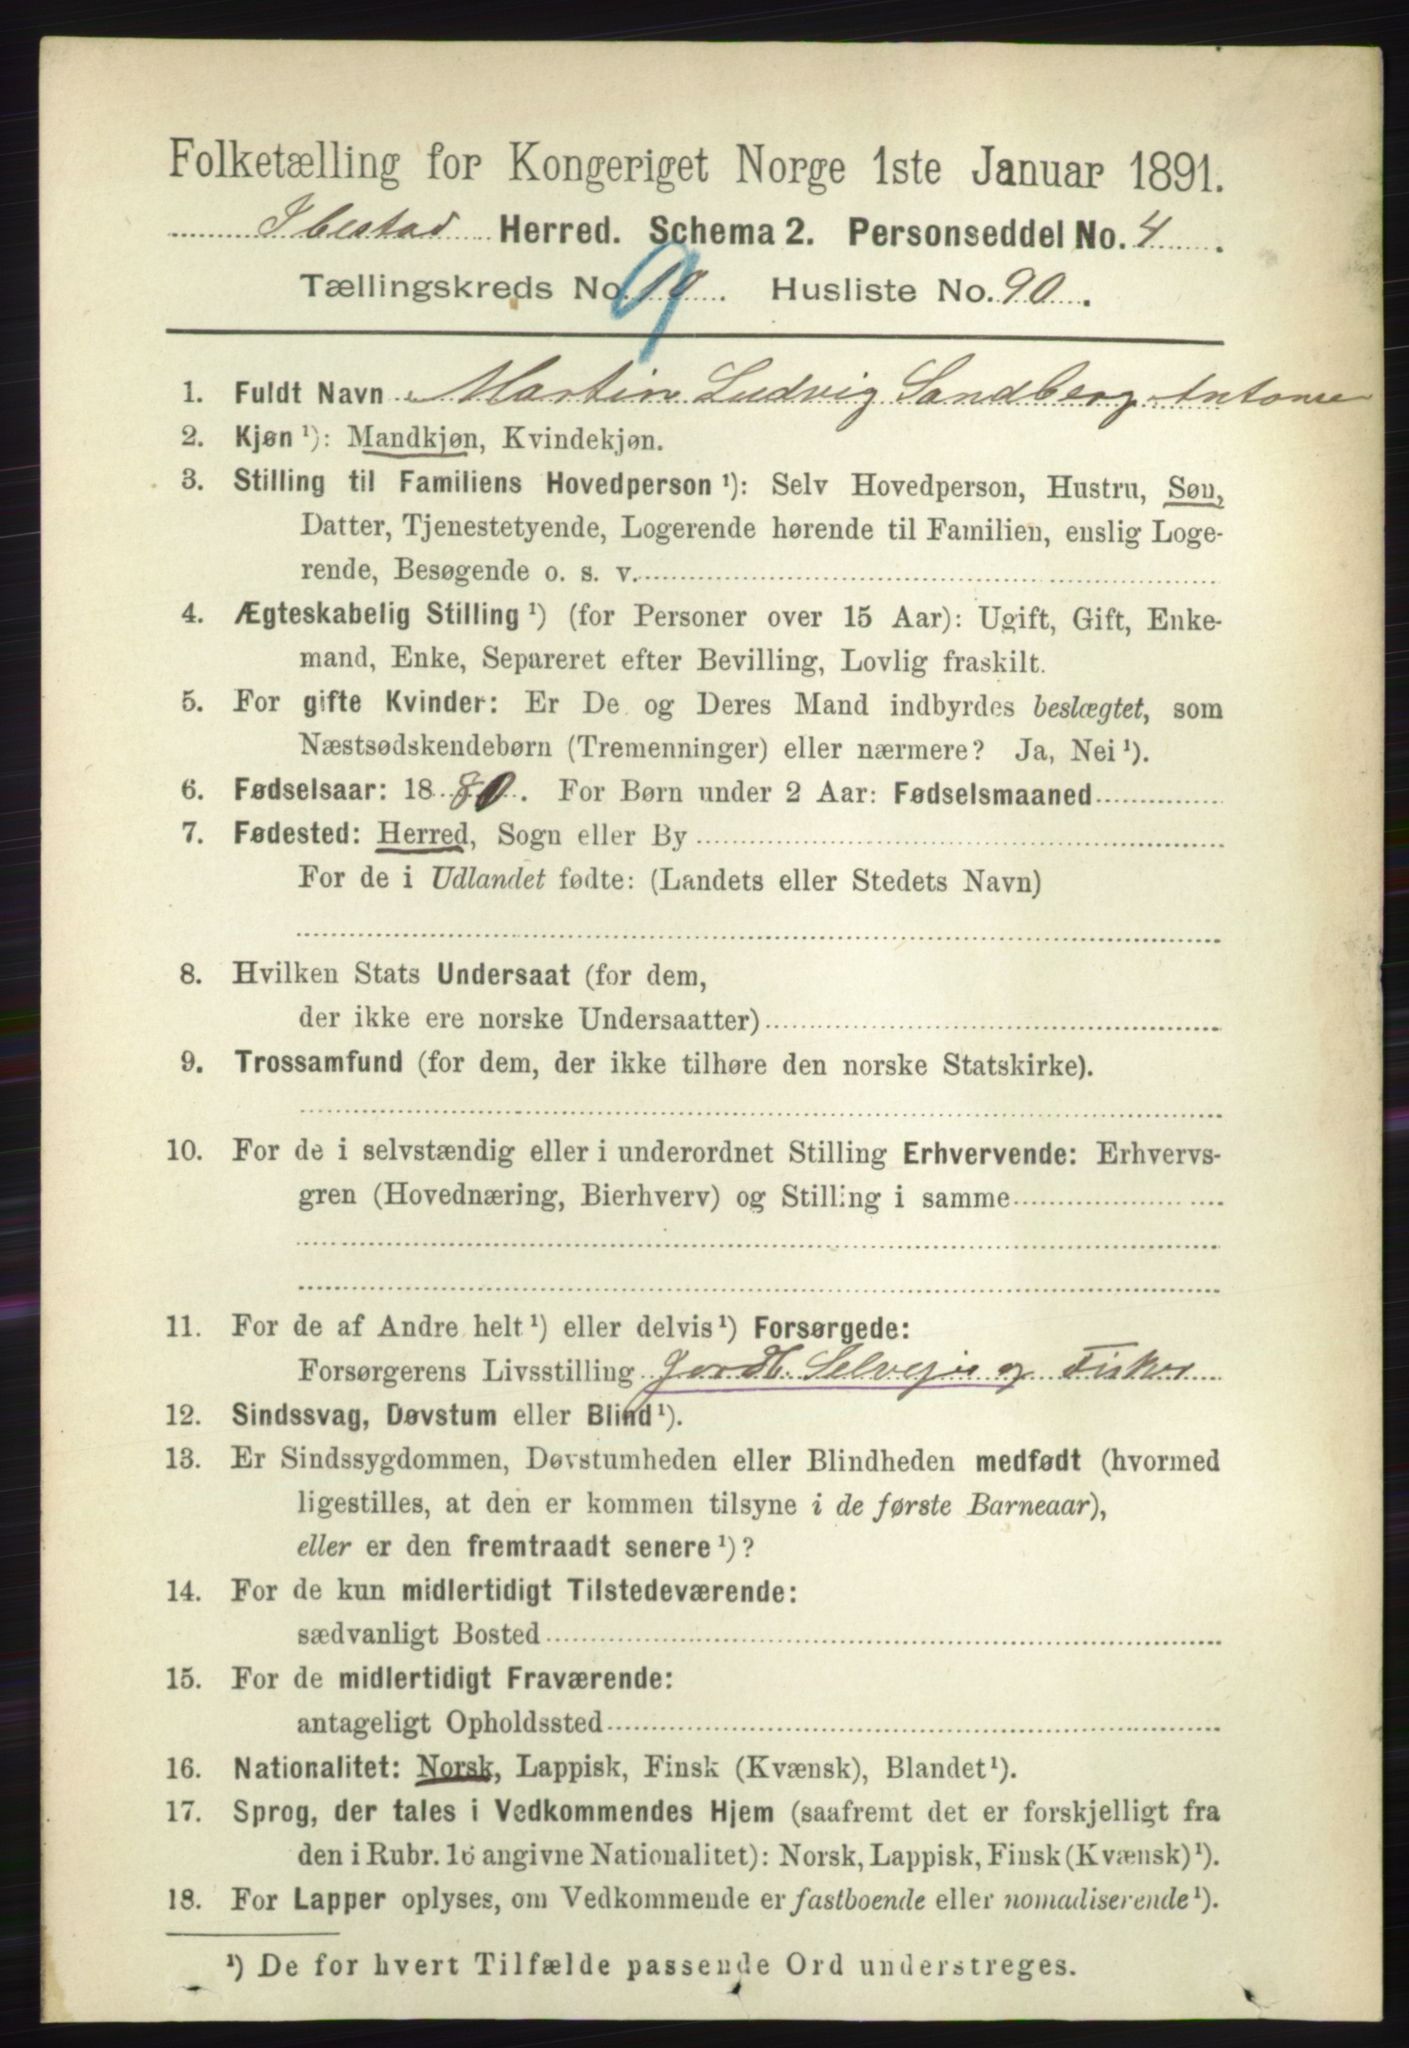 Folketælling for Kongeriget Norge 1ste Januar 1891.
Ibestad Herred. Schema 2. Personseddel No. 4.
Tællingskreds No. 10. 9 Husliste No. 90.
1. Fuldt Navn Martin Ludvig Sandberg Antonse
2. Kjøn ¹): Mandkjøn, Kvindekjøn.
3. Stilling til Familiens Hovedperson ¹): Selv Hovedperson, Hustru, Søn,
Datter, Tjenestetyende, Logerende hørende til Familien, enslig Loge-
rende, Besøgende o. s. v.
4. Ægteskabelig Stilling ¹) (for Personer over 15 Aar): Ugift, Gift, Enke-
mand, Enke, Separeret efter Bevilling, Lovlig fraskilt.
5. For gifte Kvinder: Er De og Deres Mand indbyrdes beslægtet, som
Næstsødskendebørn (Tremenninger) eller nærmere? Ja, Nei ¹).
6. Fødselsaar: 1880. For Børn under 2 Aar: Fødselsmaaned
7. Fødested: Herred, Sogn eller By
For de i Udlandet fødte: (Landets eller Stedets Navn)
8. Hvilken Stats Undersaat (for dem,
der ikke ere norske Undersaatter)
9. Trossamfund (for dem, der ikke tilhøre den norske Statskirke).
10. For de i selvstændig eller i underordnet Stilling Erhvervende: Erhvervs-
gren (Hovednæring, Bierhverv) og Stilling i samme
11. For de af Andre helt ¹) eller delvis ¹) Forsørgede:
Forsørgerens Livsstilling Jordb. Selvejer og Fisker
12. Sindssvag, Døvstum eller Blind ¹).
13. Er Sindssygdommen, Døvstumheden eller Blindheden medfødt (hvormed
ligestilles, at den er kommen tilsyne i de første Barneaar),
eller er den fremtraadt senere ¹)?
14. For de kun midlertidigt Tilstedeværende:
sædvanligt Bosted
15. For de midlertidigt Fraværende:
antageligt Opholdssted
16. Nationalitet: Norsk, Lappisk, Finsk (Kvænsk), Blandet ¹).
17. Sprog, der tales i Vedkommendes Hjem (saafremt det er forskjelligt fra
den i Rubr. 16 angivne Nationalitet): Norsk, Lappisk, Finsk (Kvænsk) ¹).
18. For Lapper oplyses, om Vedkommende er fastboende eller nomadiserende ¹).
¹) De for hvert Tilfælde passende Ord understreges.